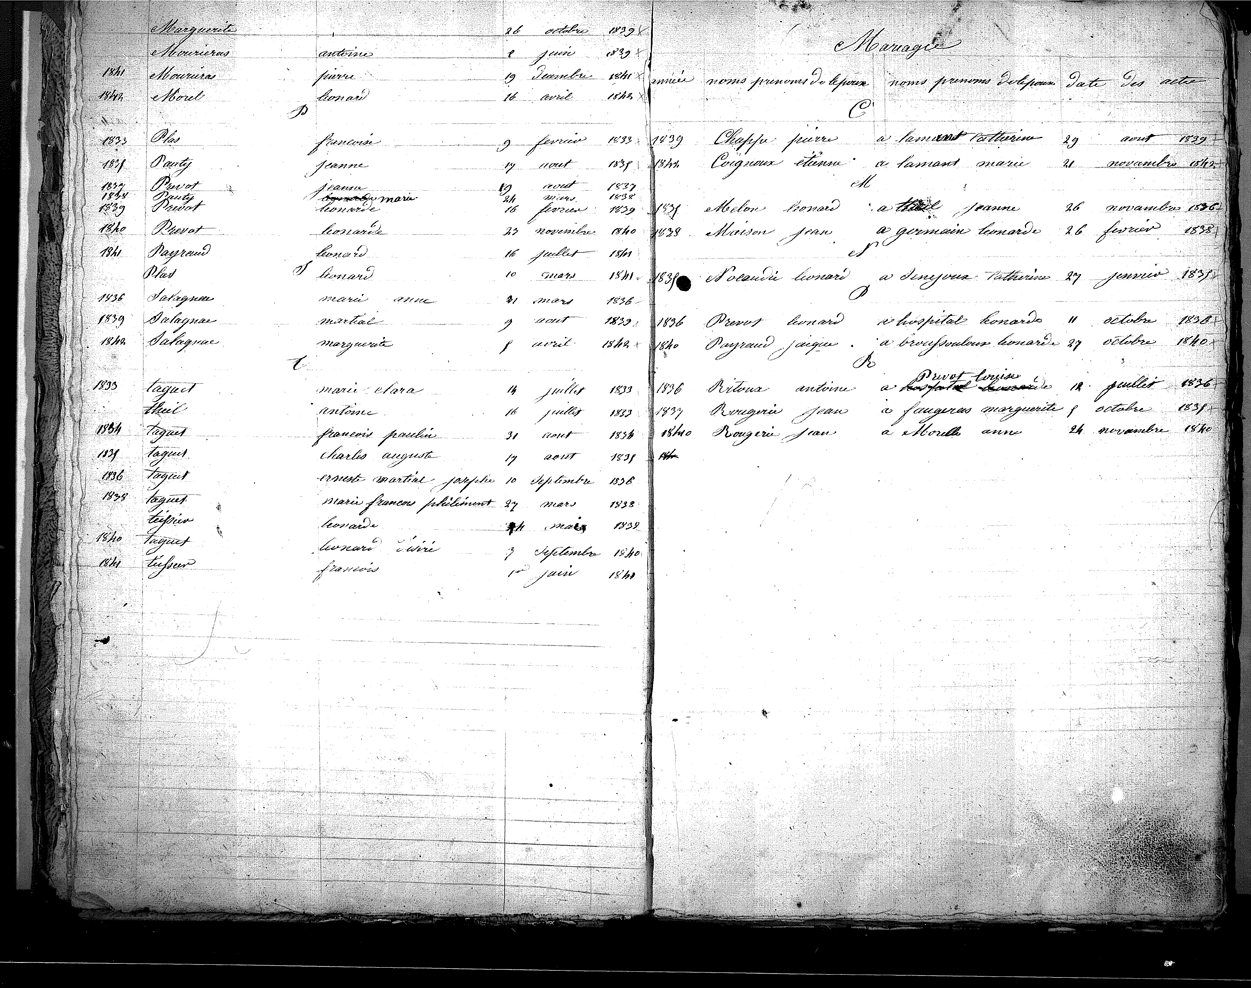 Marguerite 26 octobre 1839
Mourieras antoine 2 juin 1839
1841 Mourieras pierre 19 decembre 1841
1842 Morel leonard 16 avril 1842
P
1833 Plas francoise 9 fevrier 1833
1835 Pauty jeanne 17 aout 1835
1837 Prevot jeanne 19 aout 1837
1838 Pauty marie 24 mars 1838
1839 Prevot leonarde 16 fevrier 1839
1840 Prevot leonarde 23 novembre 1840
1841 Payraud leonard 16 juillet 1841
Plas leonard 10 mars 1841
S
1836 Salagnac marie anne 31 mars 1836
1839 Salagnac martial 9 aout 1839
1842 Salagnac marguerite 5 avril 1842
T
1833 taquet marie clara 14 juillet 1833
theil antoine 16 juillet 1833
1834 taquet francois paulin 31 aout 1834
1835 taquet charles auguste 17 aout 1835
1836 taquet erneste martial josephe 10 septembre 1836
1838 taquet marie francois philiment 27 mars 1838
teissier leonarde 24 mai 1838
1840 taquet leonard désiré 3 septembre 1840
1841 teissier francois 1er juin 1841
Mariage
année noms prenoms de lepoux noms prenoms de lepoux date des actes
C
1839 Chappe pierre a lamant Catherine 29 aout 1839
1842 Coignoux étienne a lamant marie 21 novembre 1842
M
1835 Melon leonard a theil jeanne 26 novembre 1836
1838 Maison jean a germain leonarde 26 fevrier 1838
N
1835 Nocaudie leonard a Senejoux Catherine 27 janvier 1835
P
1836 Prevot leonard a hospital leonarde 11 octobre 1836
1840 Payraud jacque a broussouloux leonarde 27 octobre 1840
R
Prevot louise
1836 Ritoux antoine a hospital leonarde 12 juillet 1836
1837 Rougerie jean a faugeras marguerite 5 octobre 1835
1840 Rougerie jean a Morelle anne 24 novembre 1840